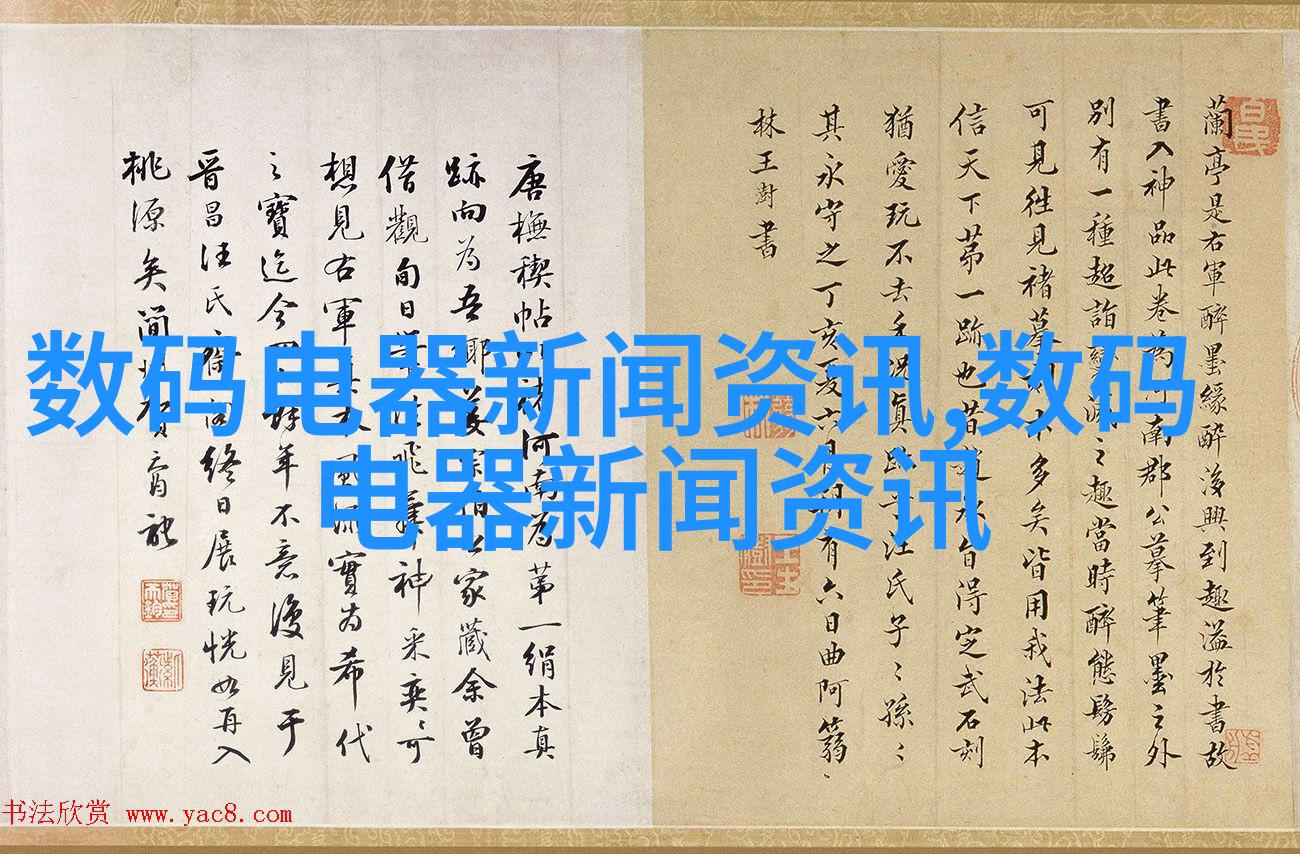 数码电器新闻资讯,数码
电器新闻资讯
蘭亭是右軍醉墨緣醉後興到趣溢於書故
書入神品此卷為河南郡公摹筆墨之外
別有一種超詣之趣當時醉態髣髴
可見往見褚摹不多矣皆用我法此本
信天下第一跡也昔得定武石刻
猶愛玩不去手況真跡乎汪氏子〻孫〻
其永守之丁亥夏六月有六日曲阿篛
林王澍書
唐橅稧帖褚河南為第一絹本真
跡向為吾鄉家藏余曾
借觀旬日飛舞神采奕〻可
想見右軍實為希代
之寶迄今年不意復見于
晉昌汪氏終日展玩恍如再入
桃源矣賀
书法欣赏 www.yac8.com